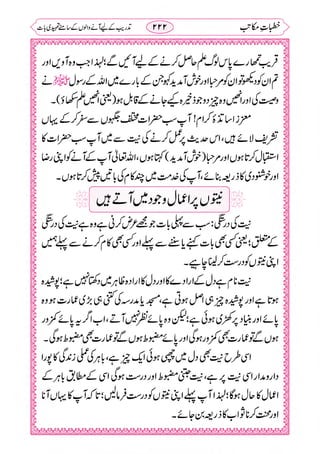 خطباتِ مکاتب ۲۲۲ تدریب کے لیے آنے والوں کے سامنے تمہیدی بات
قریب تمہارے پاس لوگ علم حاصل کرنے کے لیے آئیں گے؛ لہٰذا جب وہ آویں اور
تم ان کو دیکھو تو ان کو مرحبا اور خوش آمدید کہو جن کے بارے میں اللہ کے رسول ﷺ نے
وصیت کی اور انھیں وہ چیز دو جو ذخیرہ کیے جانے کے قابل ہو (یعنی انھیں علم سکھاؤ)۔
معزز اساتذۂ کرام! آپ سب حضرات مختلف جگہوں سے سفر کر کے یہاں
تشریف لائے ہیں، اس حدیث پر عمل کرنے کی نیت سے میں آپ سب حضرات کا
استقبال کرتا ہوں اور مرحبا (خوش آمدید) کہتا ہوں، اللہ تعالیٰ آپ کے آنے کو اپنی رضا
اور خوشنودی کا ذریعہ بنائے، آپ کی خدمت میں چند کام کی باتیں پیش کرتا ہوں۔
نیتوں پر اعمال وجود میں آتے ہیں
نیت کی درستگی: سب سے پہلی بات جو مجھے عرض کرنی ہے وہ ہے نیت کی درستگی
کے متعلق؛ یعنی کسی بھی بات کہنے یا سننے سے پہلے اور کسی بھی کام کرنے سے پہلے ہمیں
اپنی نیتوں کو درست کر لینا چاہیے۔
نیت نام ہے دل کے ارادے کا اور دل کا ارادہ ظاہر میں دکھتا نہیں ہے؛ پوشیدہ
ہوتا ہے اور پوشیدہ چیز ہی اصل ہوتی ہے، مسجد یا مدرسہ کی کتنی ہی بڑی عمارت ہو وہ
پائے اور بنیاد پر کھڑی ہوئی ہے؛ لیکن وہ پائے نظر نہیں آتے، اب اگر یہ پائے کمزور
ہوں گے تو عمارت بھی کمزور ہوگی اور پائے مضبوط ہوں گے تو عمارت بھی مضبوط ہوگی۔
اسی طرح نیت بھی دل میں چھپی ہوئی ایک چیز ہے، باہر کی عملی زندگی کا پورا
دارومدار اسی نیت پر ہے، نیت جتنی مضبوط اور درست ہوگی اسی کے مطابق باہر کے
اعمال کا حال ہوگا؛ لہٰذا آپ پہلے اپنی نیتوں کو درست فرما لیں؛ تاکہ آپ کا یہاں آنا
اور محنت کرنا ثواب کا ذریعہ بن جائے۔